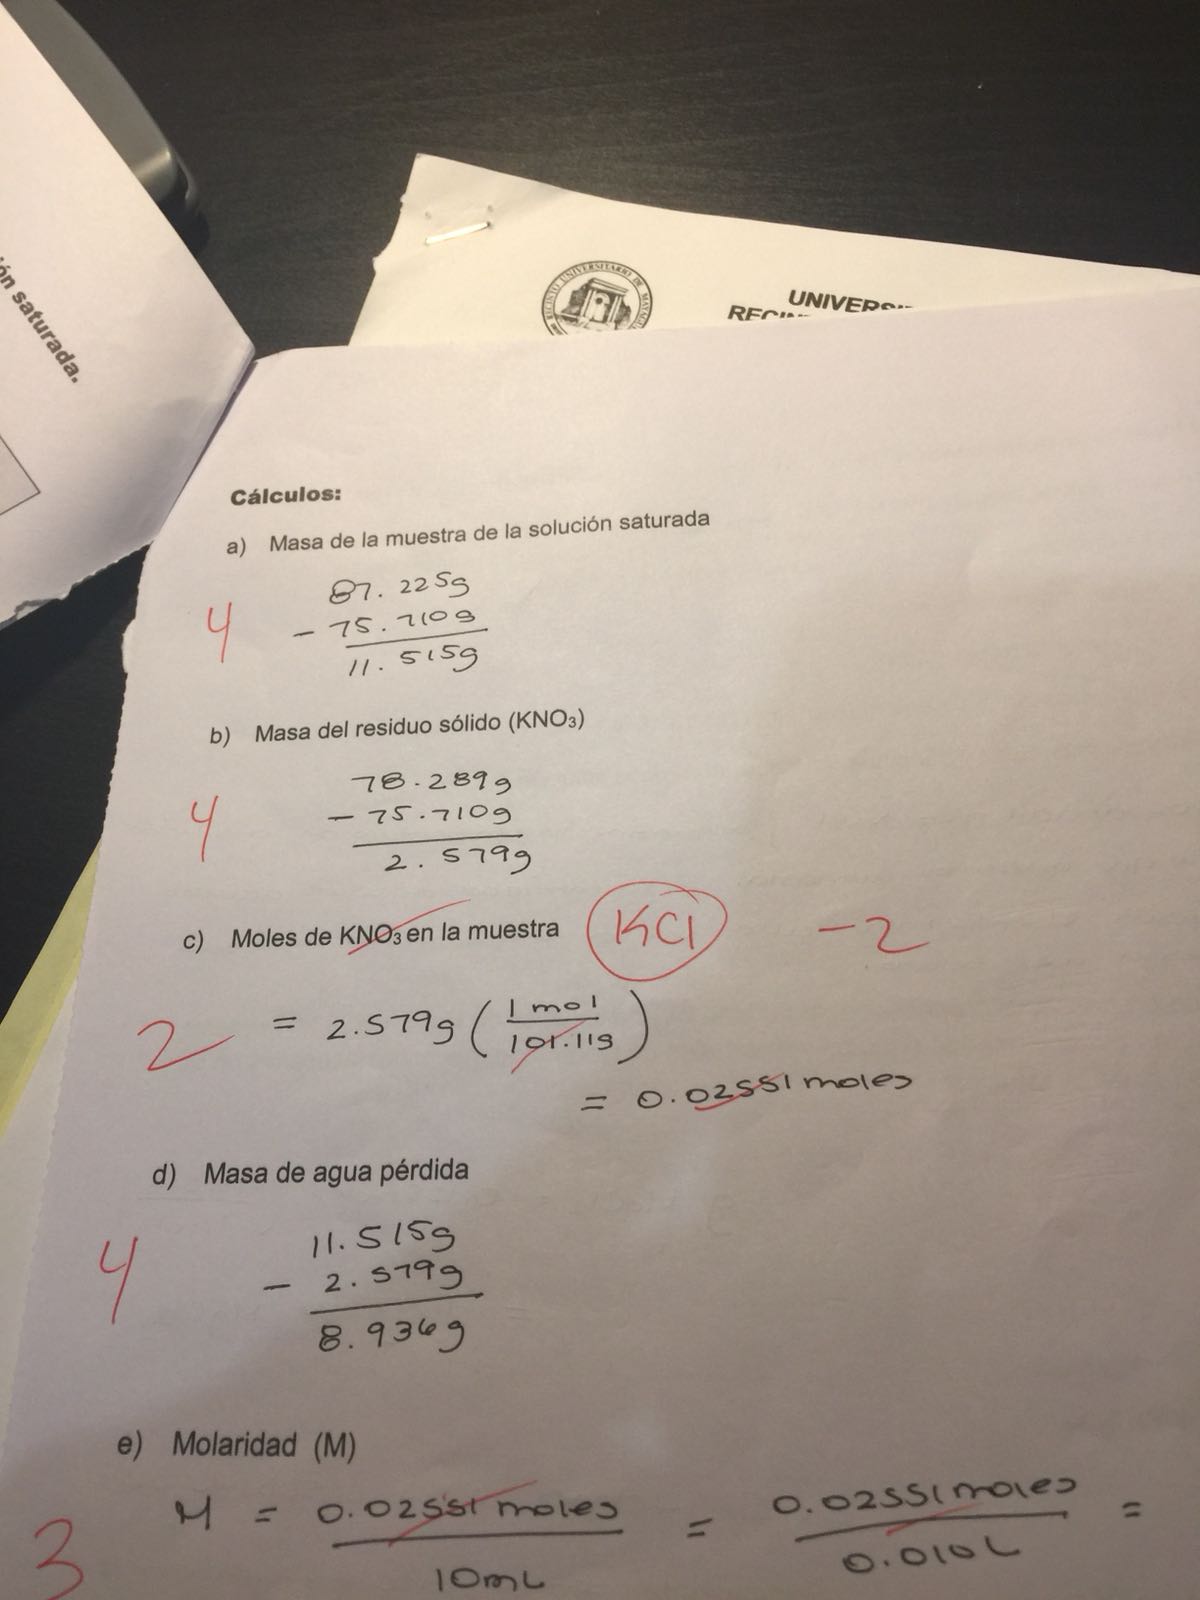 ón saturada.
RECINTO UNIVERSITARIO DE
UNIVERSI
RECIN
Cálculos:
a) Masa de la muestra de la solución saturada
87.225g
4
- 75.710g
11.515g
b) Masa del residuo sólido (KNO₃)
78.289g
4
- 75.710g
2.579g
c) Moles de KNO₃ en la muestra KCl -2
2
= 2.579g (1 mol / 101.11g)
= 0.02551 moles
d) Masa de agua pérdida
11.515g
4
- 2.579g
8.936g
e) Molaridad (M)
3
M = 0.02551 moles / 10mL = 0.02551 moles / 0.010L =